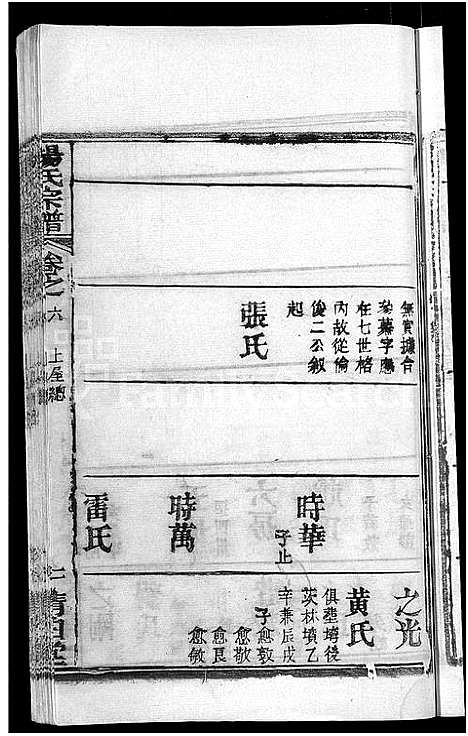 楊氏宗譜
卷之六
上屋總
清白堂
無實據合
在七世格
內故從倫
後二公敘
起
張氏
時華
子止
時萬
雷氏
之光
黄氏
俱塟塝後
茨林墳乙
辛兼辰戌
子愈敦
愈敬
愈良
愈敏